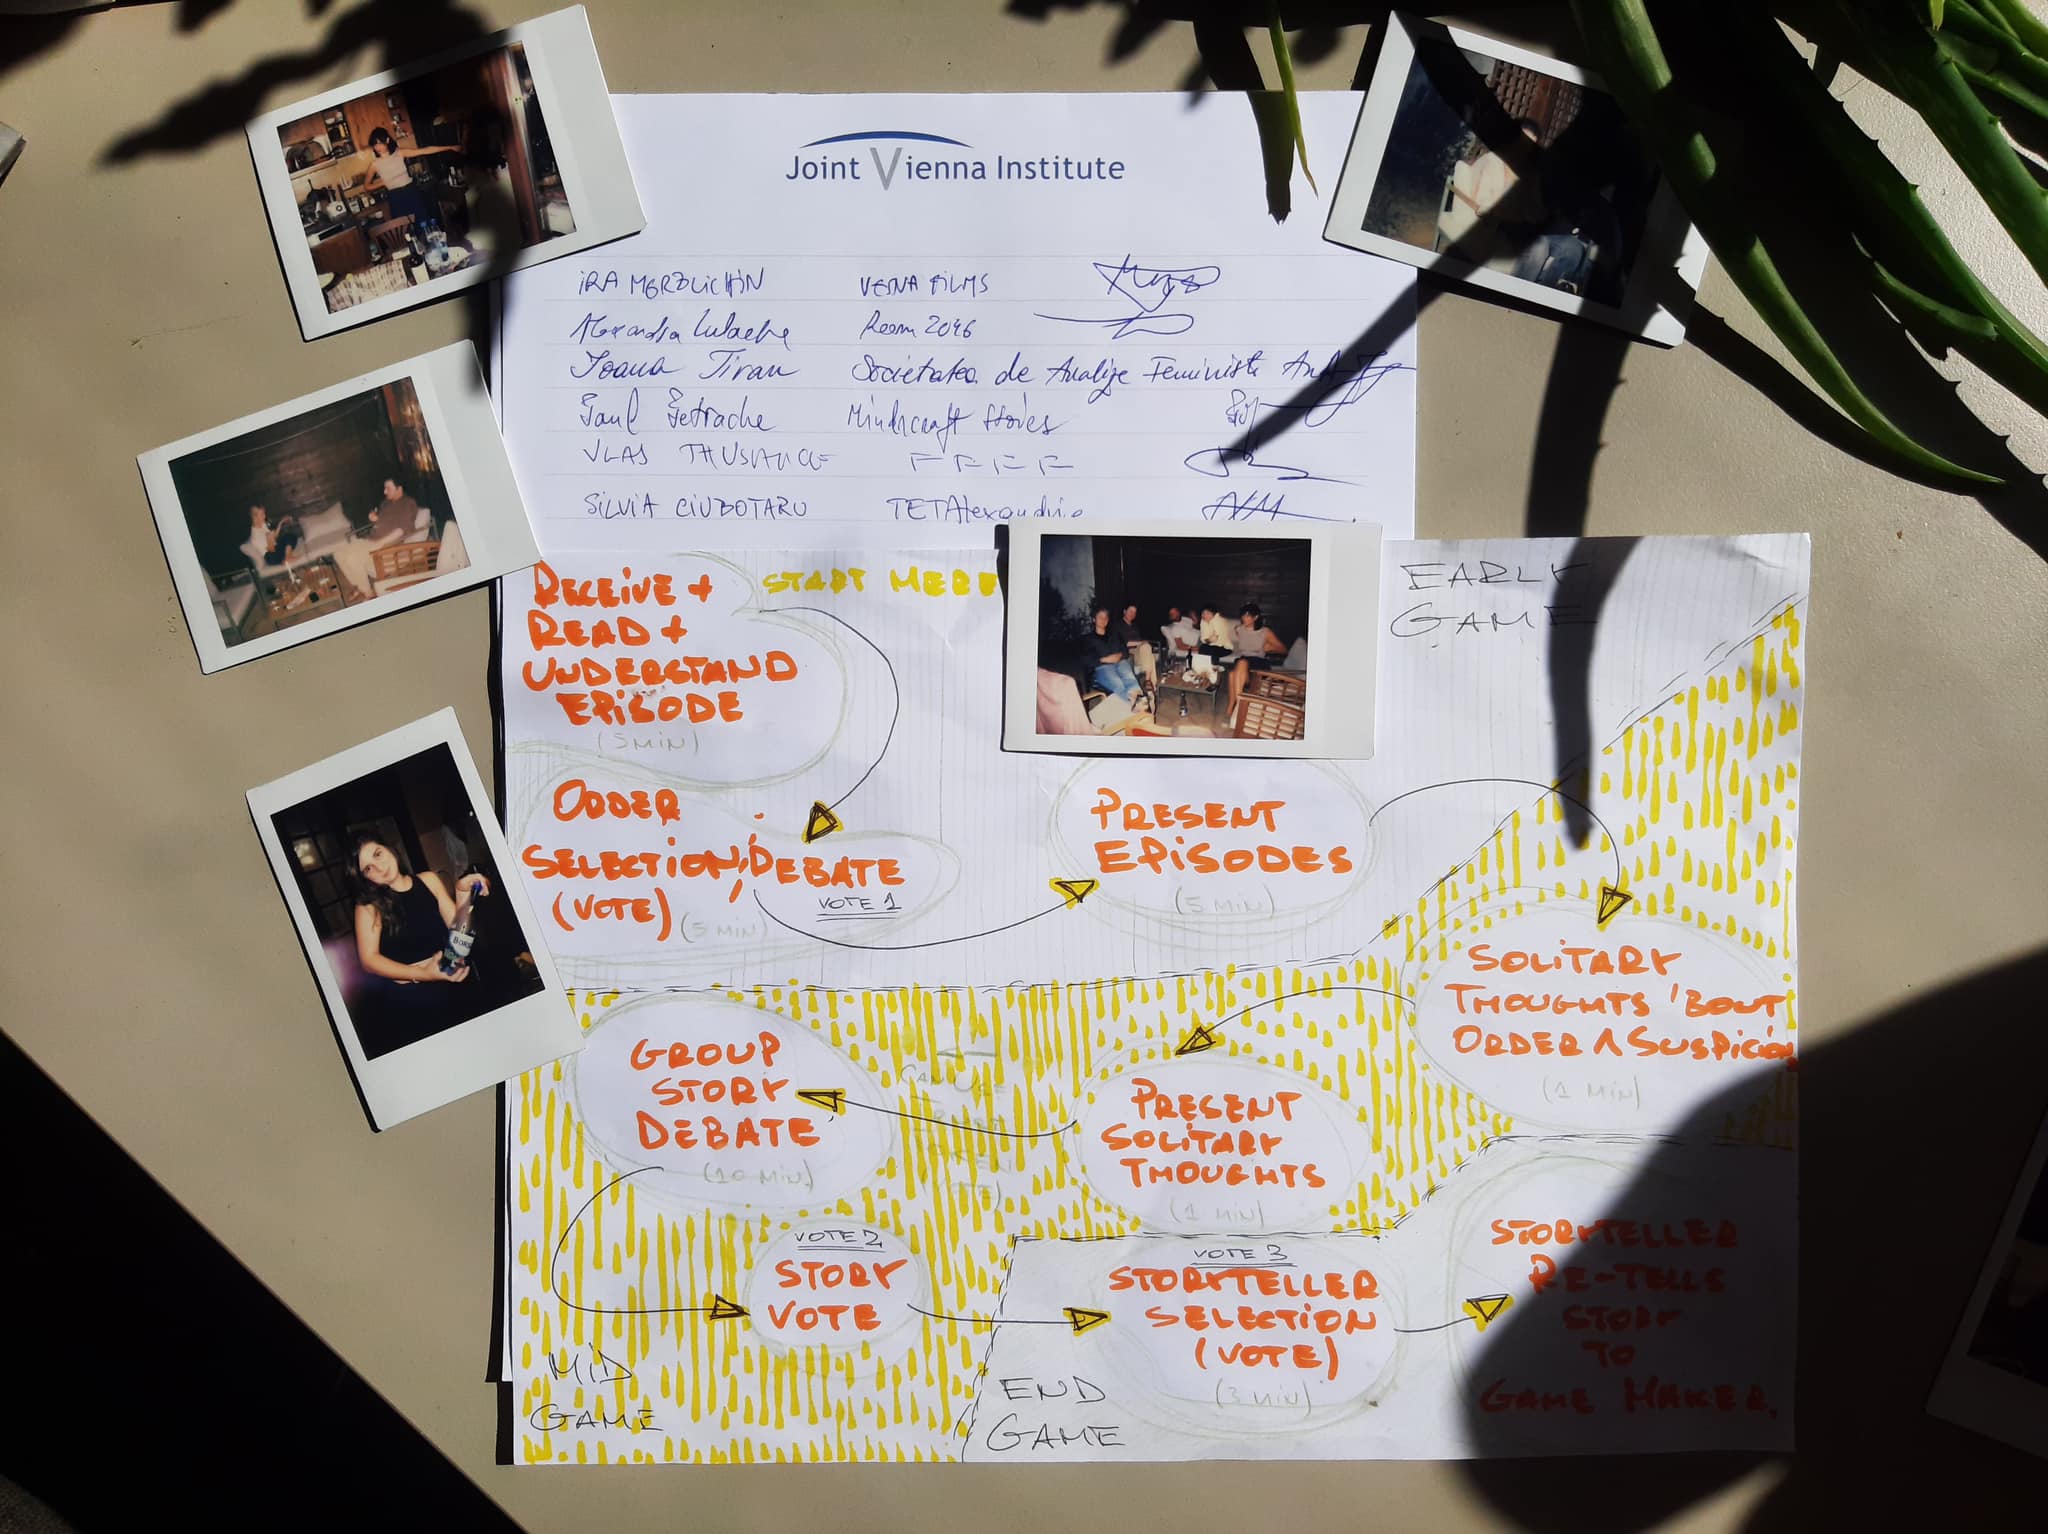 Joint Vienna Institute
IRA MERZLICHIN VESNA FILMS
Alexandra Room 2046
Ioana Tiran Societatea de Analize Feministe AnA
Paul Petrache Mindcraft Stories
VLAS FFFF
SILVIA CIUBOTARU TETAlexandrie
START HERE
EARLY
GAME
RECEIVE +
READ +
UNDERSTAND
EPISODE
(5 MIN)
ORDER
SELECTION, DEBATE
(VOTE) (5 MIN) VOTE 1
PRESENT
EPISODES
(5 MIN)
SOLITARY
THOUGHTS 'BOUT
ORDER ∧ SUSPICION
(1 MIN)
PRESENT
SOLITARY
THOUGHTS
(1 MIN)
GROUP
STORY
DEBATE
(10 MIN)
VOTE 2
STORY
VOTE
MID
GAME
VOTE 3
STORYTELLER
SELECTION
(VOTE)
(3 MIN)
END
GAME
STORYTELLER
RE-TELLS
STORY
TO
GAME MAKER.